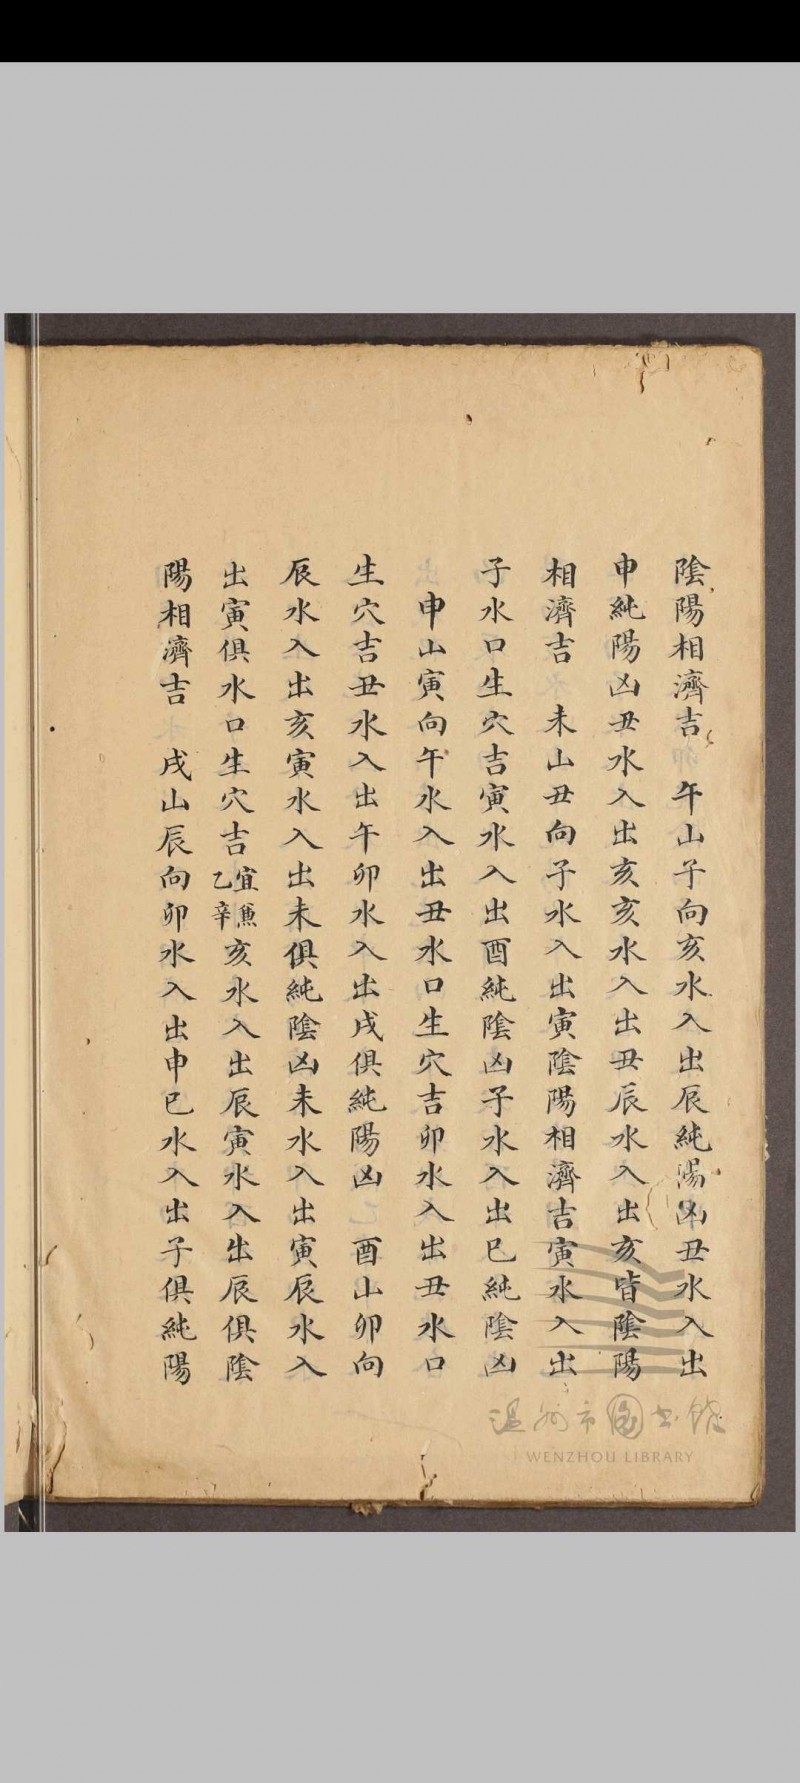 陰陽相濟吉　午山子向亥水入出辰純陽凶丑水入出
申純陽凶丑水入出亥亥水入出丑辰水入出亥皆陰陽
相濟吉　未山丑向子水入出寅陰陽相濟吉寅水入出
子水口生穴吉寅水入出酉純陰凶子水入出巳純陰凶
　申山寅向午水入出丑水口生穴吉卯水入出丑水口
生穴吉丑水入出午卯水入出戌俱純陽凶　酉山卯向
辰水入出亥寅水入出未俱純陰凶未水入出寅辰水入
出寅俱水口生穴吉宜兼乙辛亥水入出辰寅水入出辰俱陰
陽相濟吉　戌山辰向卯水入出申巳水入出子俱純陽
温州市图书馆
WENZHOU LIBRARY